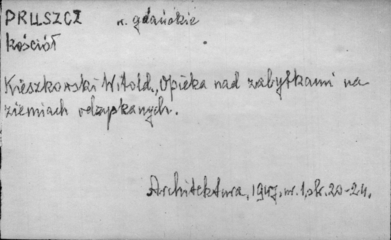 PRUSZCZ w. gdańskie
kościół
Kieszkowski Witold, Opieka nad zabytkami na
ziemiach odzyskanych.
Architektura, 1947, nr. 1, str. 20-24.